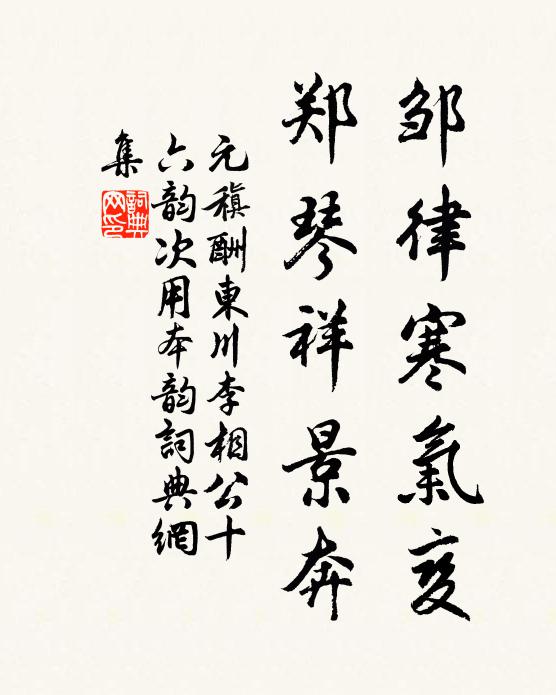 邹律寒氣变
郑琴祥景奔
元稹酬東川李相公十
六韵次用本韵詞典網
集
詞典
网印